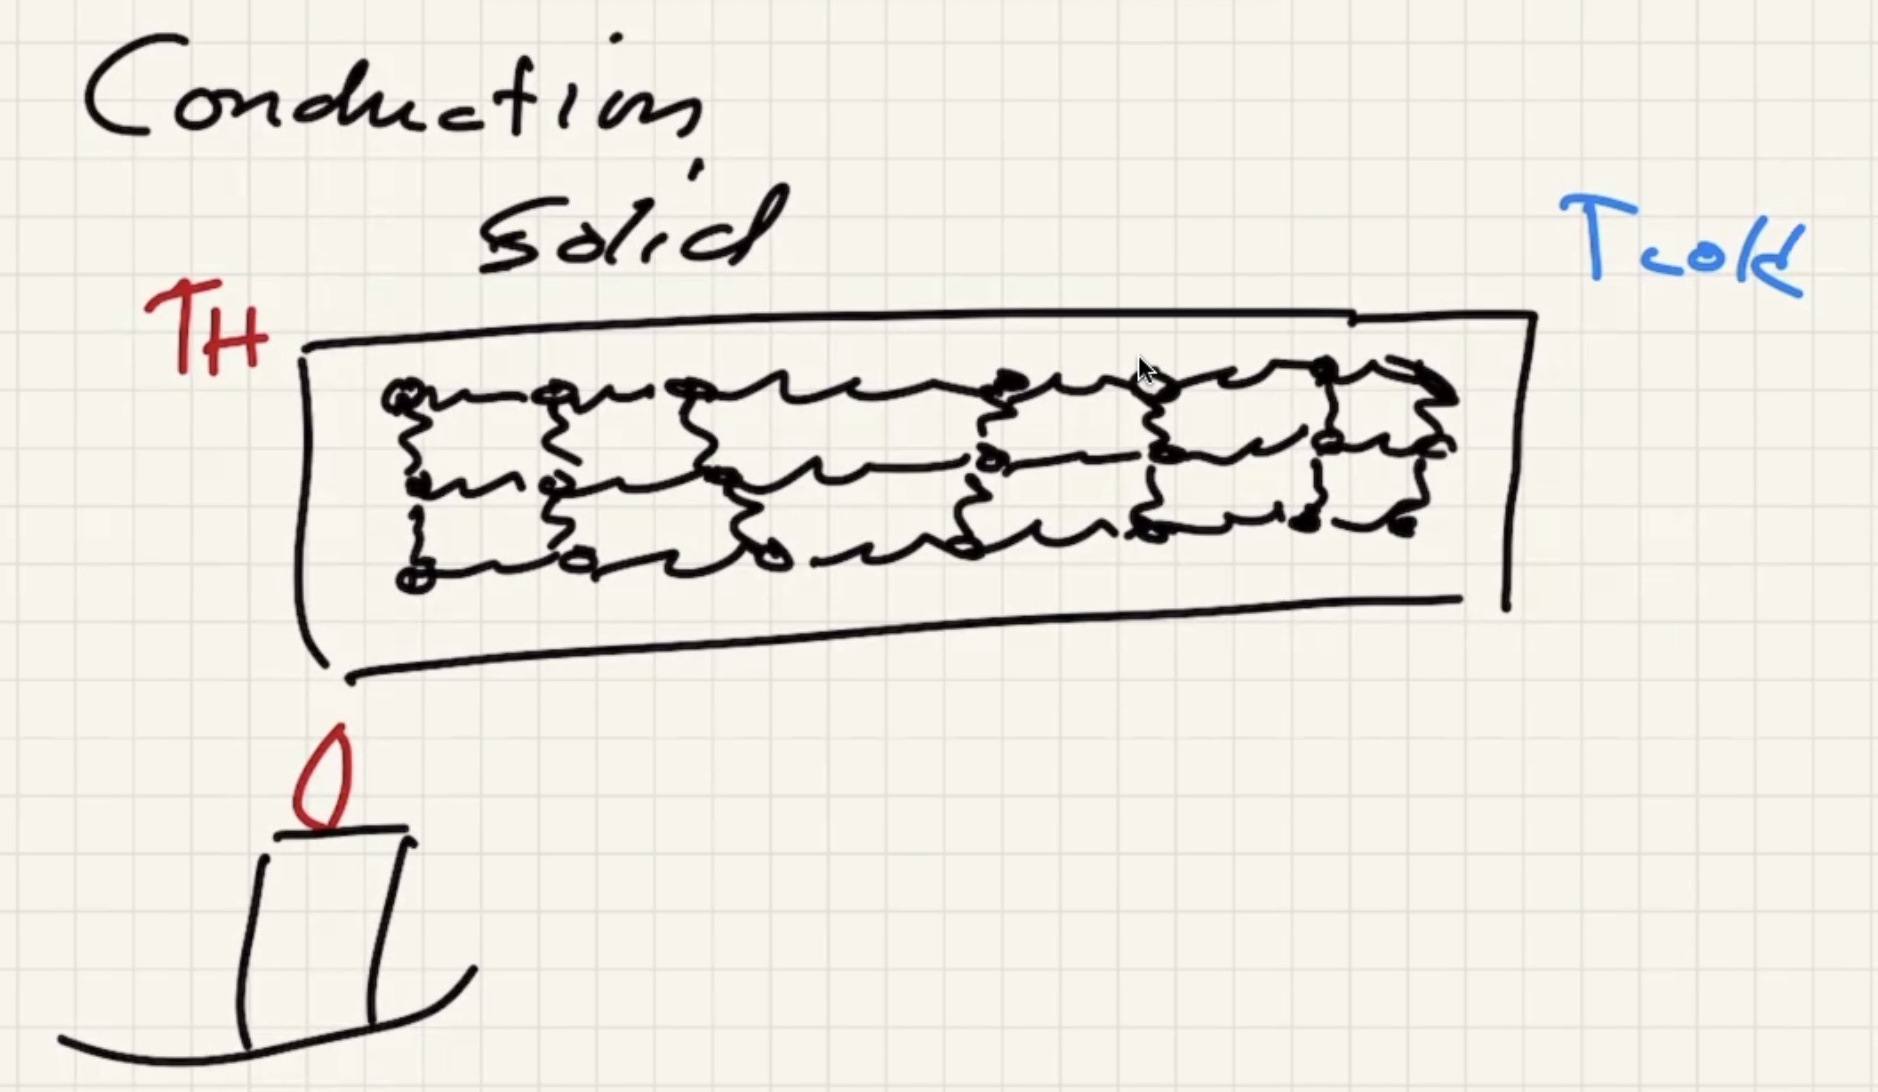 Conduction
Solid
Tcold
TH